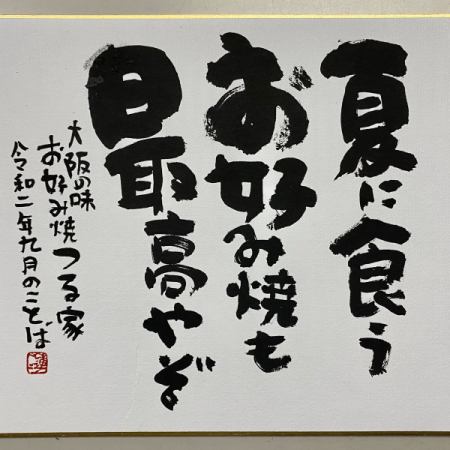 夏に食う
お好み焼も
最高やぞ
大阪の味
お好み焼つる家
令和二年九月のことば